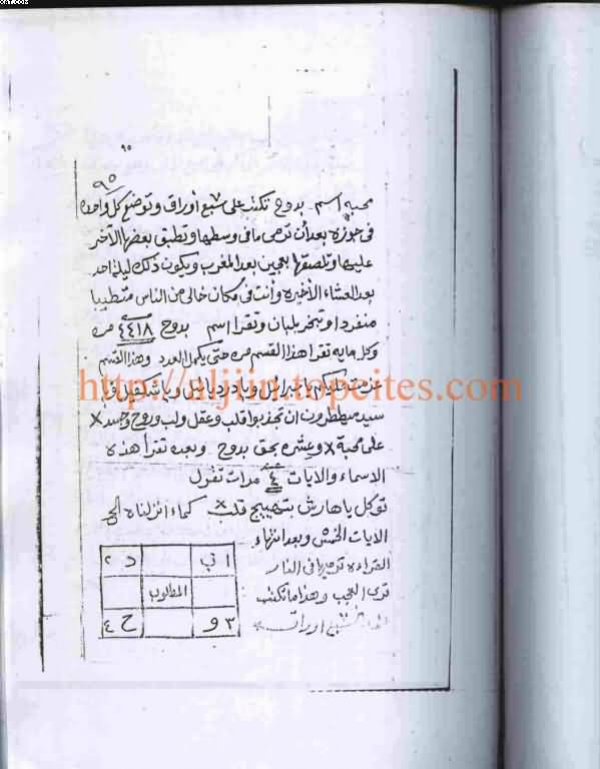 ٩٥
محبه اسم بدوح تكتب على سبع اوراق وتوضع كل واحده
فى جوزه بعد أن ترمى مافى وسطها وتطبق بعضها الآخر
عليها وتلصقها بعجين بعد المغرب ويكون ذلك ليلة احد
بعد العشاء الأخيره وأنت فى مكان خالى من الناس متطيبا
منفردا وتبخر بلبان وتقرا اسم بدوح ٤٤١٨ مره
وكل مايه تقرا هذا القسم مره حتى يكمل العدد وهذا القسم
http://aljiin.topcites.com
سيد ميططرون ان تجذبوا قلب وعقل ولب وروح وجسد x
على محبة x وعشره بحق بدوح وبعده تقرأ هذه
الاسماء والايات ٤ مرات تقول
توكل ياهارش بتهييج قلب x كماء انزلناه الخ
الايات الخمس وبعد انتهاء
القراءه ترميها فى النار
ترى العجب وهذا ما تكتب
اوراق
١ ب د ٢
المطلوب
٣ و ح ٤